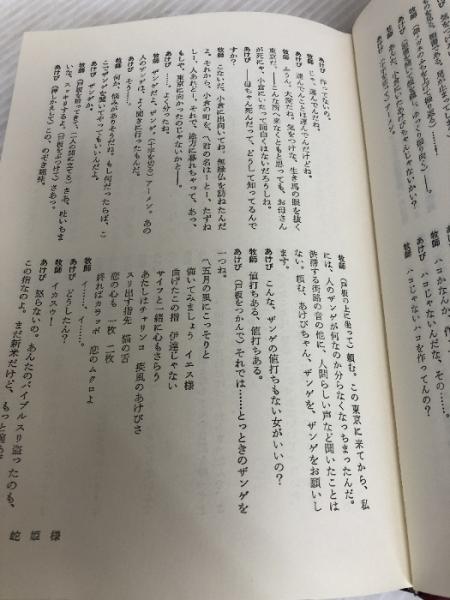 あけび 作ってないの。
牧師 じゃ、選んでんだね。
あけび 選んでんことは選んでんだけどね。
牧師 ふうん。大変だね。気をつけな、生き馬の眼を抜く
東京だ。——こんな所へ来なくともと思っても、お母さん
が死にゃ、小倉にいたって面白くはないだろうしね。
あけび ——母ちゃん死んだって、どうして知ってるんで
すか?
牧師 こないだ、小倉に出向いてね。無縁仏を訪ねたんだ
よ。それから、小倉の町を、〽君の名はーとー、たずね
しー、人あれどー、それで、途方に暮れちゃって、あっ、
もしや、東京に向かったのじゃないかとー。
あけび ——よく分ったね。
牧師 ザンゲだよ、ザンゲ。(十字を切る) アーメン。あの
人のザンゲは、よく聞きに行ったものだ。
あけび そうー。
牧師 何か、悩みがありそうだね。もし何だったらば、こ
こでザンゲを聞いてやってもいいんだよ。
あけび ザンゲか。
牧師
いな。スッキリするよ。(戸板をぶつけて) さあっ。
あけび (押しかえして) この、のぞき趣味。
牧師 (戸板の上に坐って) 頼む。この東京に来てから、私
には、人のザンゲが何なのか分らなくなっちまったんだ。
渋滞する街路の音の他に、人間らしい声など聞いたことは
ない。頼む、あけびちゃん、ザンゲを、ザンゲをお願いし
ます。
あけび こんな、ザンゲの値打ちもない女がいいの?
牧師 値打ちある、値打ちある。
あけび (戸板をおしかえして) それでは……とっときのザンゲを
一つね。
〽五月の風にこっそりと
働いてみましょう イエス様
曲げたこの指 伊達じゃない
サイフと一緒に心もさらう
あたしはチャリンコ 疾風のあけびさ
スリ出す指先 猫の舌
恋の心も 一枚 二枚
終ればカラッポ 恋のムクロよ
牧師 イ……、イ……。
あけび どうしたん?
牧師 イカスウ!
あけび 怒らないの。あんたのバイブルスリ盗ったのも、
この指なのよ。まだ新米だけど、もっと腕
ハコじゃないんだな、その……
牧師 ハコじゃないハコを作ってんの?
蛇姫様